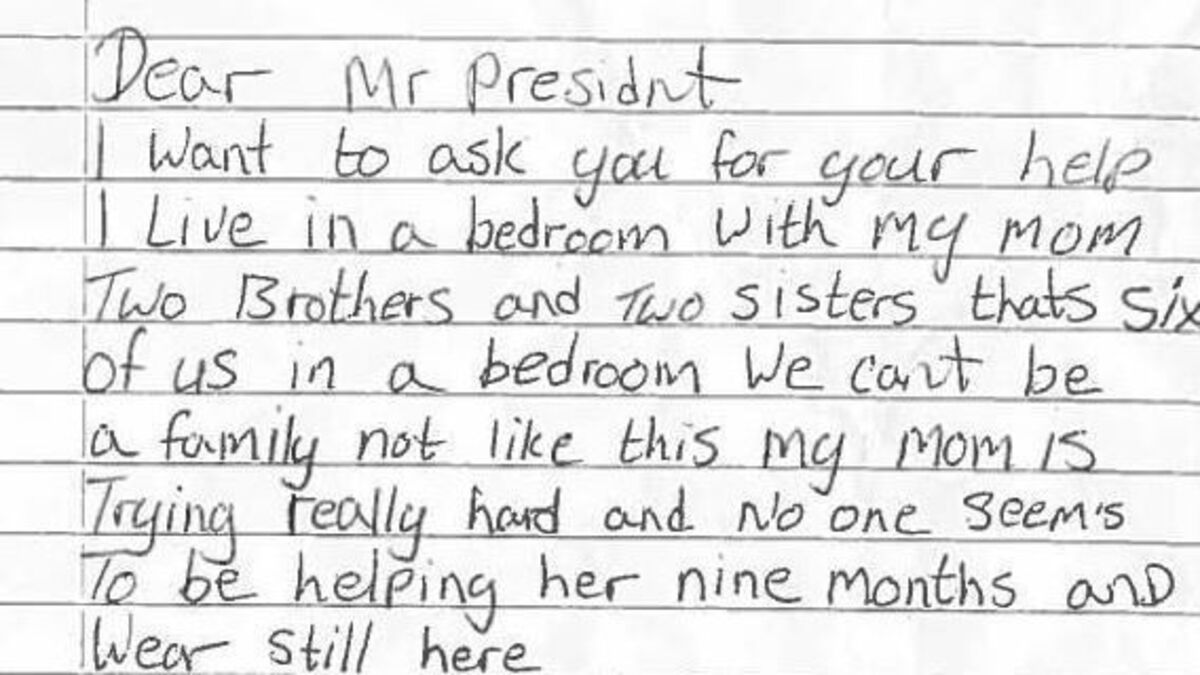 Dear Mr Presidnt
I Want to ask you for your help
I Live in a bedroom With my mom
Two Brothers and Two sisters thats six
of us in a bedroom We can't be
a family not like this my mom is
Trying really hard and No one seem's
To be helping her nine months and
Wear still here